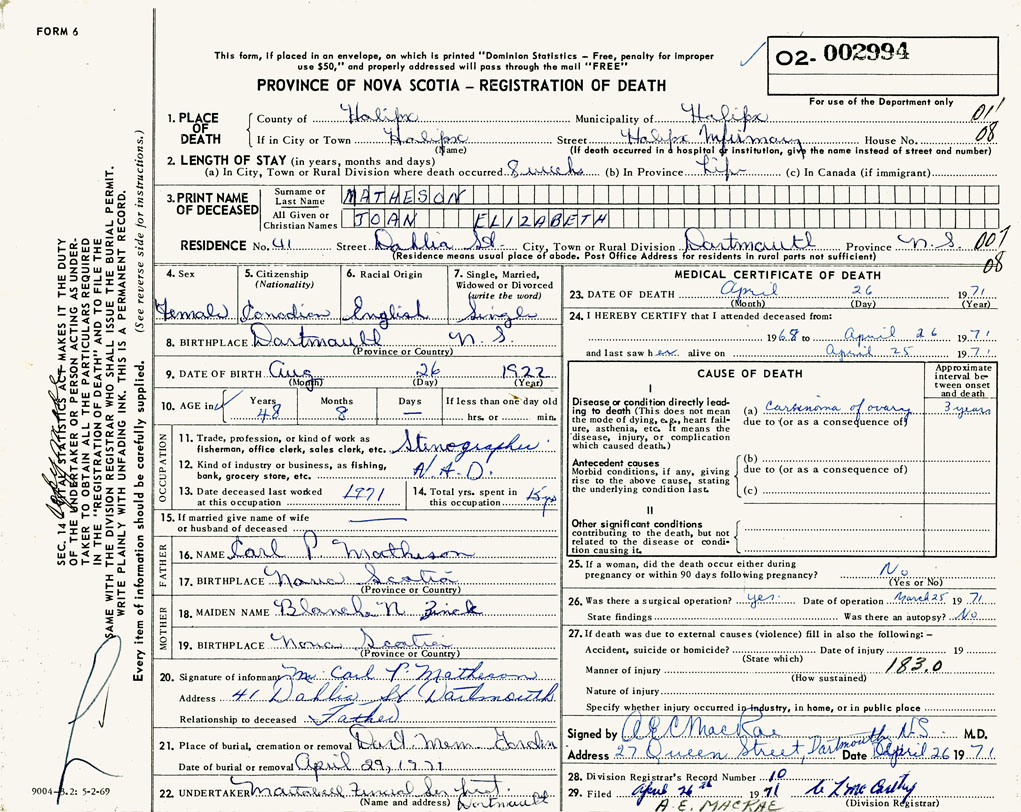 FORM 6
This form, if placed in an envelope, on which is printed "Dominion Statistics - Free, penalty for improper
use $50," and properly addressed will pass through the mail "FREE"
O2- 002994
For use of the Department only
PROVINCE OF NOVA SCOTIA - REGISTRATION OF DEATH
1. PLACE OF DEATH County of Halifax Municipality of Halifax 01
If in City or Town Halifax (Name) Street Halifax Infirmary House No. 08
(If death occurred in a hospital or institution, give the name instead of street and number)
2. LENGTH OF STAY (in years, months and days)
(a) In City, Town or Rural Division where death occurred 8 weeks (b) In Province Life (c) In Canada (if immigrant)
3. PRINT NAME OF DECEASED Surname or Last Name MATHESON
All Given or Christian Names JOAN ELIZABETH
RESIDENCE No. 41 Street Dahlia St. City, Town or Rural Division Dartmouth Province N.S. 001
(Residence means usual place of abode. Post Office Address for residents in rural parts not sufficient) 08
4. Sex Female
5. Citizenship (Nationality) Canadian
6. Racial Origin English
7. Single, Married, Widowed or Divorced (write the word) Single
8. BIRTHPLACE Dartmouth N.S.
(Province or Country)
9. DATE OF BIRTH Aug 26 1922
(Month) (Day) (Year)
10. AGE in Years 48 Months 8 Days — If less than one day old hrs. or min.
OCCUPATION
11. Trade, profession, or kind of work as fisherman, office clerk, sales clerk, etc. Stenographer
12. Kind of industry or business, as fishing, bank, grocery store, etc.
13. Date deceased last worked at this occupation 1971
14. Total yrs. spent in this occupation 15 yrs
15. If married give name of wife or husband of deceased —
FATHER
16. NAME Carl P. Matheson
17. BIRTHPLACE Nova Scotia
(Province or Country)
MOTHER
18. MAIDEN NAME Blanch N. Zinck
19. BIRTHPLACE Nova Scotia
(Province or Country)
20. Signature of informant Mr. Carl P. Matheson
Address 41 Dahlia St Dartmouth
Relationship to deceased Father
21. Place of burial, cremation or removal Dart. Mem. Garden
Date of burial or removal April 29, 1971
22. UNDERTAKER Funeral Ser. Dartmouth
(Name and address)
MEDICAL CERTIFICATE OF DEATH
23. DATE OF DEATH April 26 1971
(Month) (Day) (Year)
24. I HEREBY CERTIFY that I attended deceased from:
1968 to April 26 1971
and last saw her alive on April 25 1971
CAUSE OF DEATH
Approximate interval between onset and death
I
Disease or condition directly leading to death (This does not mean the mode of dying, e.g., heart failure, asthenia, etc. It means the disease, injury, or complication which caused death.)
(a) Carcinoma of ovary 3 years
due to (or as a consequence of)
Antecedent causes
Morbid conditions, if any, giving rise to the above cause, stating the underlying condition last.
(b)
due to (or as a consequence of)
(c)
II
Other significant conditions contributing to the death, but not related to the disease or condition causing it.
25. If a woman, did the death occur either during pregnancy or within 90 days following pregnancy? No
(Yes or No)
26. Was there a surgical operation? yes. Date of operation March 25 1971
State findings Was there an autopsy? No
27. If death was due to external causes (violence) fill in also the following: -
Accident, suicide or homicide? (State which) Date of injury 19
Manner of injury (How sustained) 183.0
Nature of injury
Specify whether injury occurred in industry, in home, or in public place
Signed by A E C MacRae N.S. M.D.
Address 27 Queen Street, Dartmouth Date April 26 1971
28. Division Registrar's Record Number 10
29. Filed April 26th 1971 McCarthy
(Division Registrar)
A. E. MACRAE
SEC. 14 VITAL STATISTICS ACT MAKES IT THE DUTY
OF THE UNDERTAKER OR PERSON ACTING AS UNDER-
TAKER TO OBTAIN ALL THE PARTICULARS REQUIRED
IN THE "REGISTRATION OF DEATH" AND TO FILE THE
SAME WITH THE DIVISION REGISTRAR WHO SHALL ISSUE THE BURIAL PERMIT.
WRITE PLAINLY WITH UNFADING INK. THIS IS A PERMANENT RECORD.
Every item of information should be carefully supplied. (See reverse side for instructions.)
9004-B.2: 5-2-69